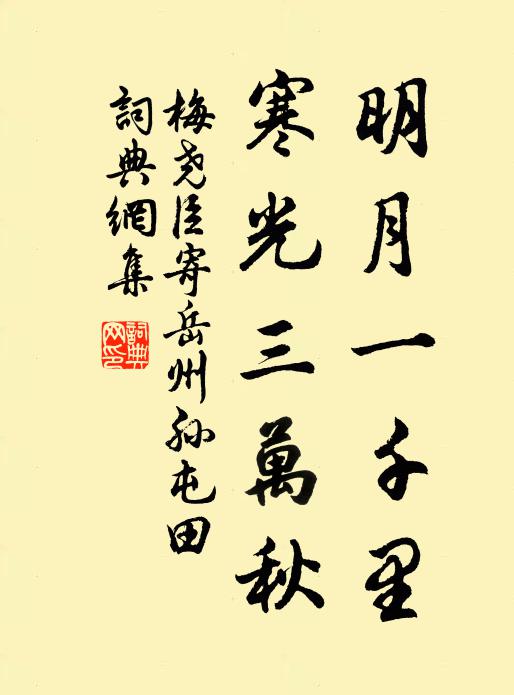 明月一千里
寒光三萬秋
梅尧臣寄岳州孙屯田
詞典網集
詞典網印